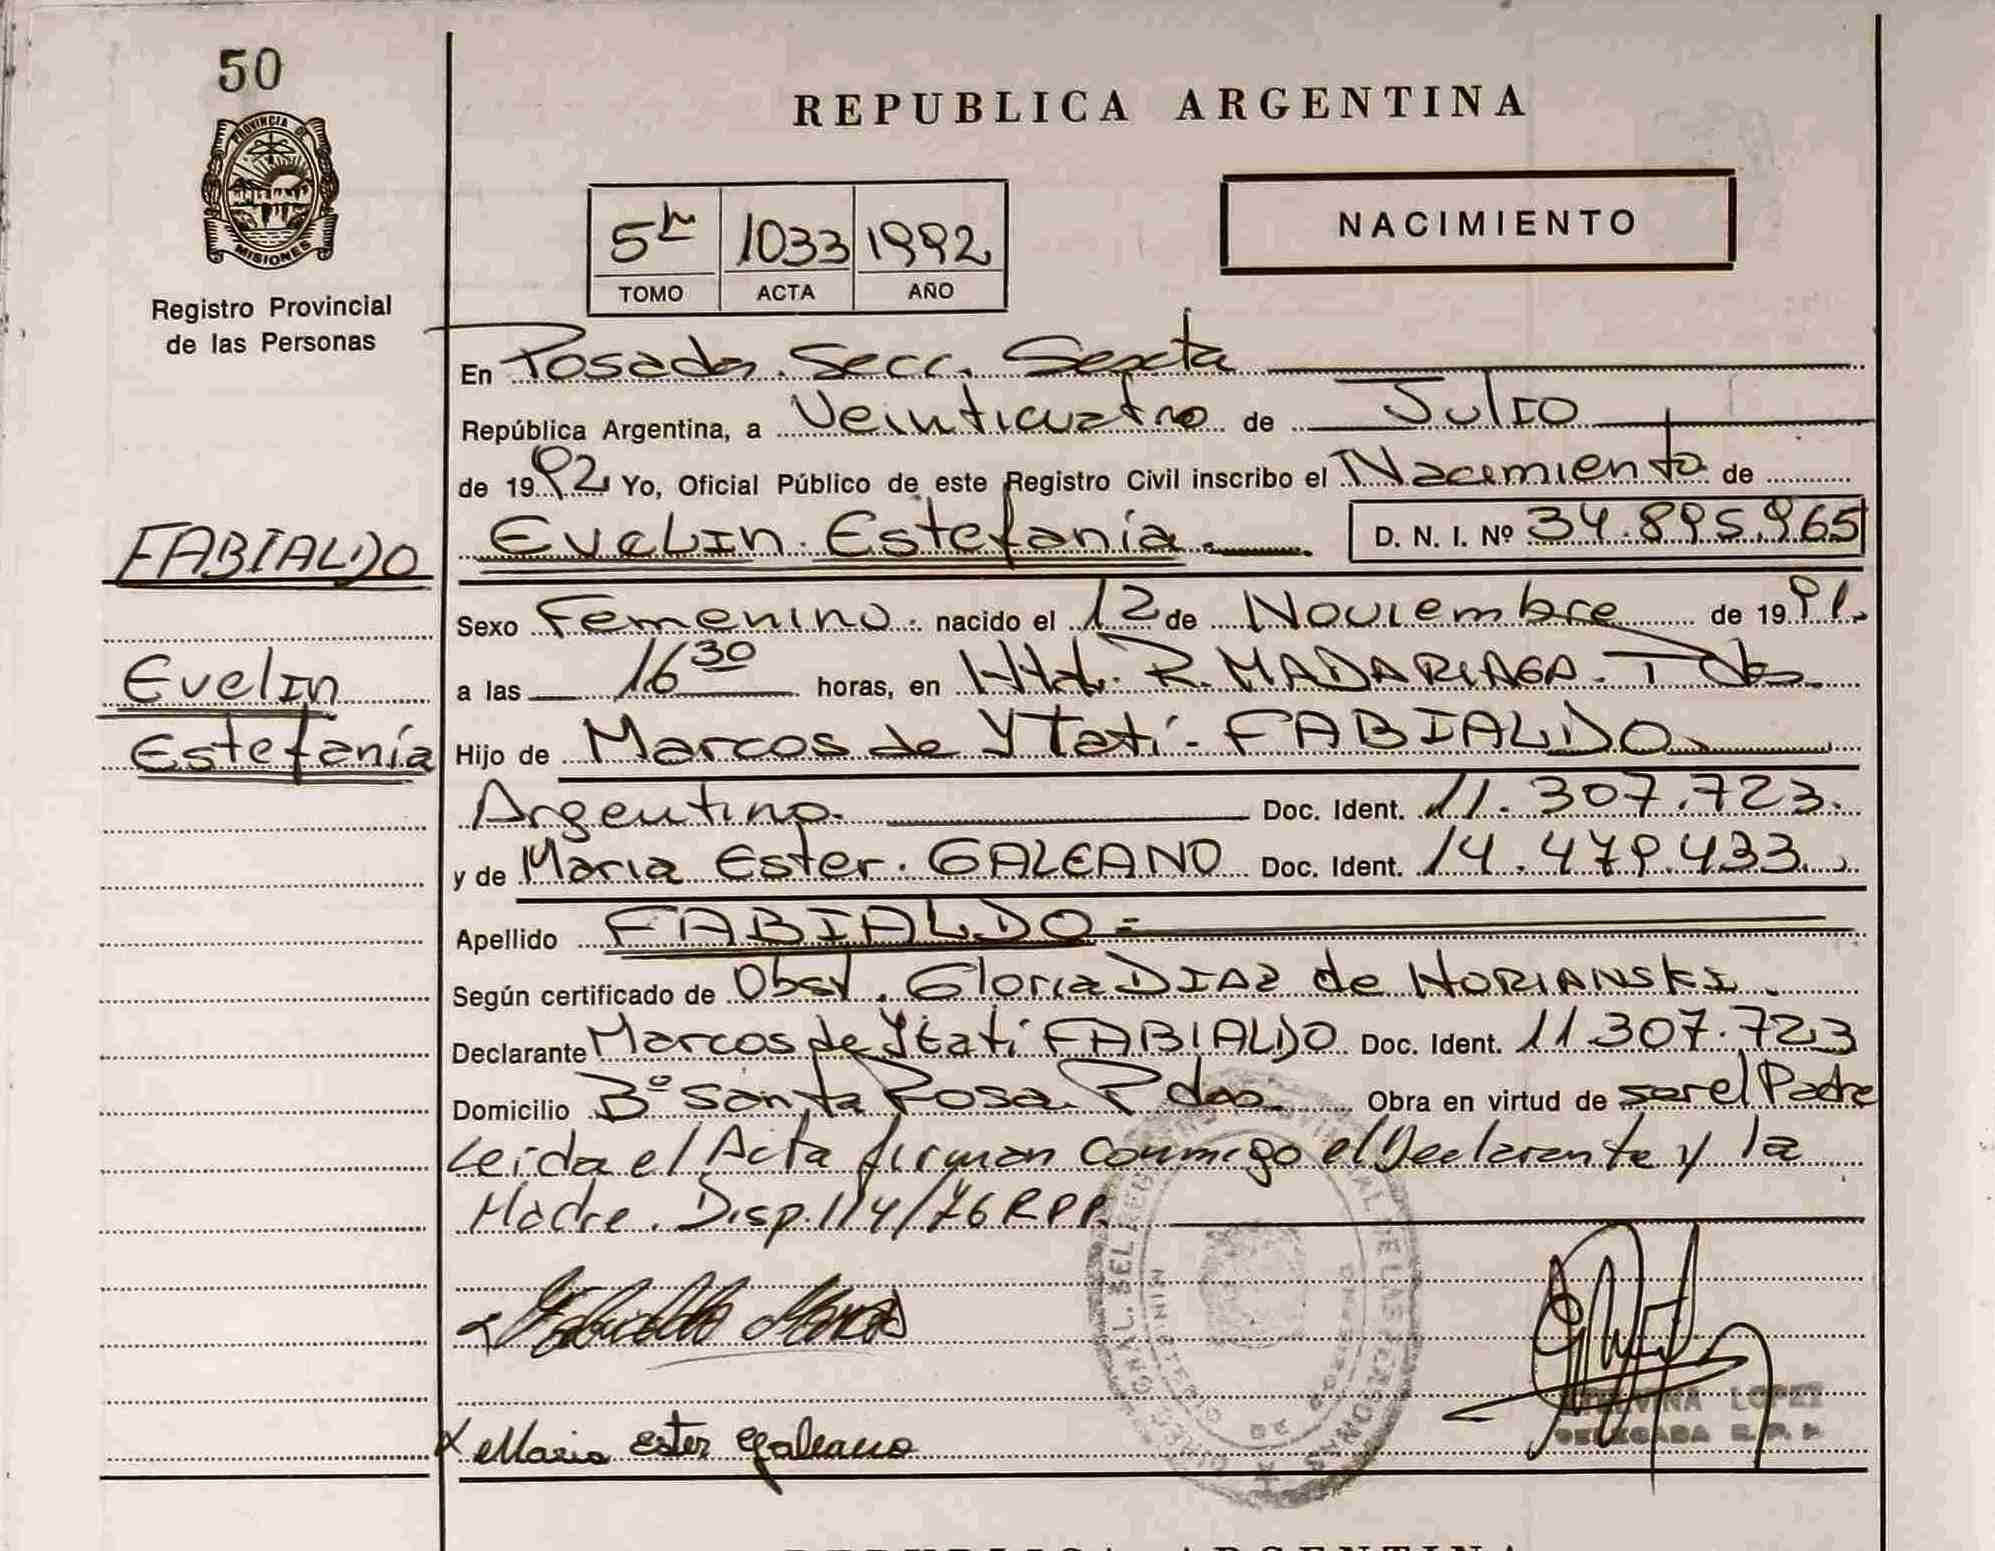 50
PROVINCIA DE
MISIONES
Registro Provincial
de las Personas
REPUBLICA ARGENTINA
5to 1033 1992
TOMO ACTA AÑO
NACIMIENTO
En Posadas. Secc. Sexta
República Argentina, a Veinticuatro de Julio
de 1992 Yo, Oficial Público de este Registro Civil inscribo el Nacimiento de
FABIALDO
Evelin Estefanía. D. N. I. Nº 34.895.965
Sexo Femenino. nacido el 12 de Noviembre de 1991.
Evelin
Estefanía
a las 16 30 horas, en Htal. R. MADARIAGA. Pdas.
Hijo de Marcos de Ytatí - FABIALDO
Argentino. Doc. Ident. 11.307.723.
y de Maria Ester. GALEANO Doc. Ident. 14.479.433.
Apellido FABIALDO =
Según certificado de Obst. Gloria DIAZ de HORIANSKI.
Declarante Marcos de Ytatí FABIALDO Doc. Ident. 11.307.723
Domicilio Bº Santa Rosa. Pdas. Obra en virtud de ser el Padre
Leida el Acta firman conmigo el Declarante y la
Madre. Disp. 114/76 RPP.
Fabialdo Marcos
LOPEZ
DELEGADA R. P. P.
Maria Ester Galeano
REPUBLICA ARGENTINA